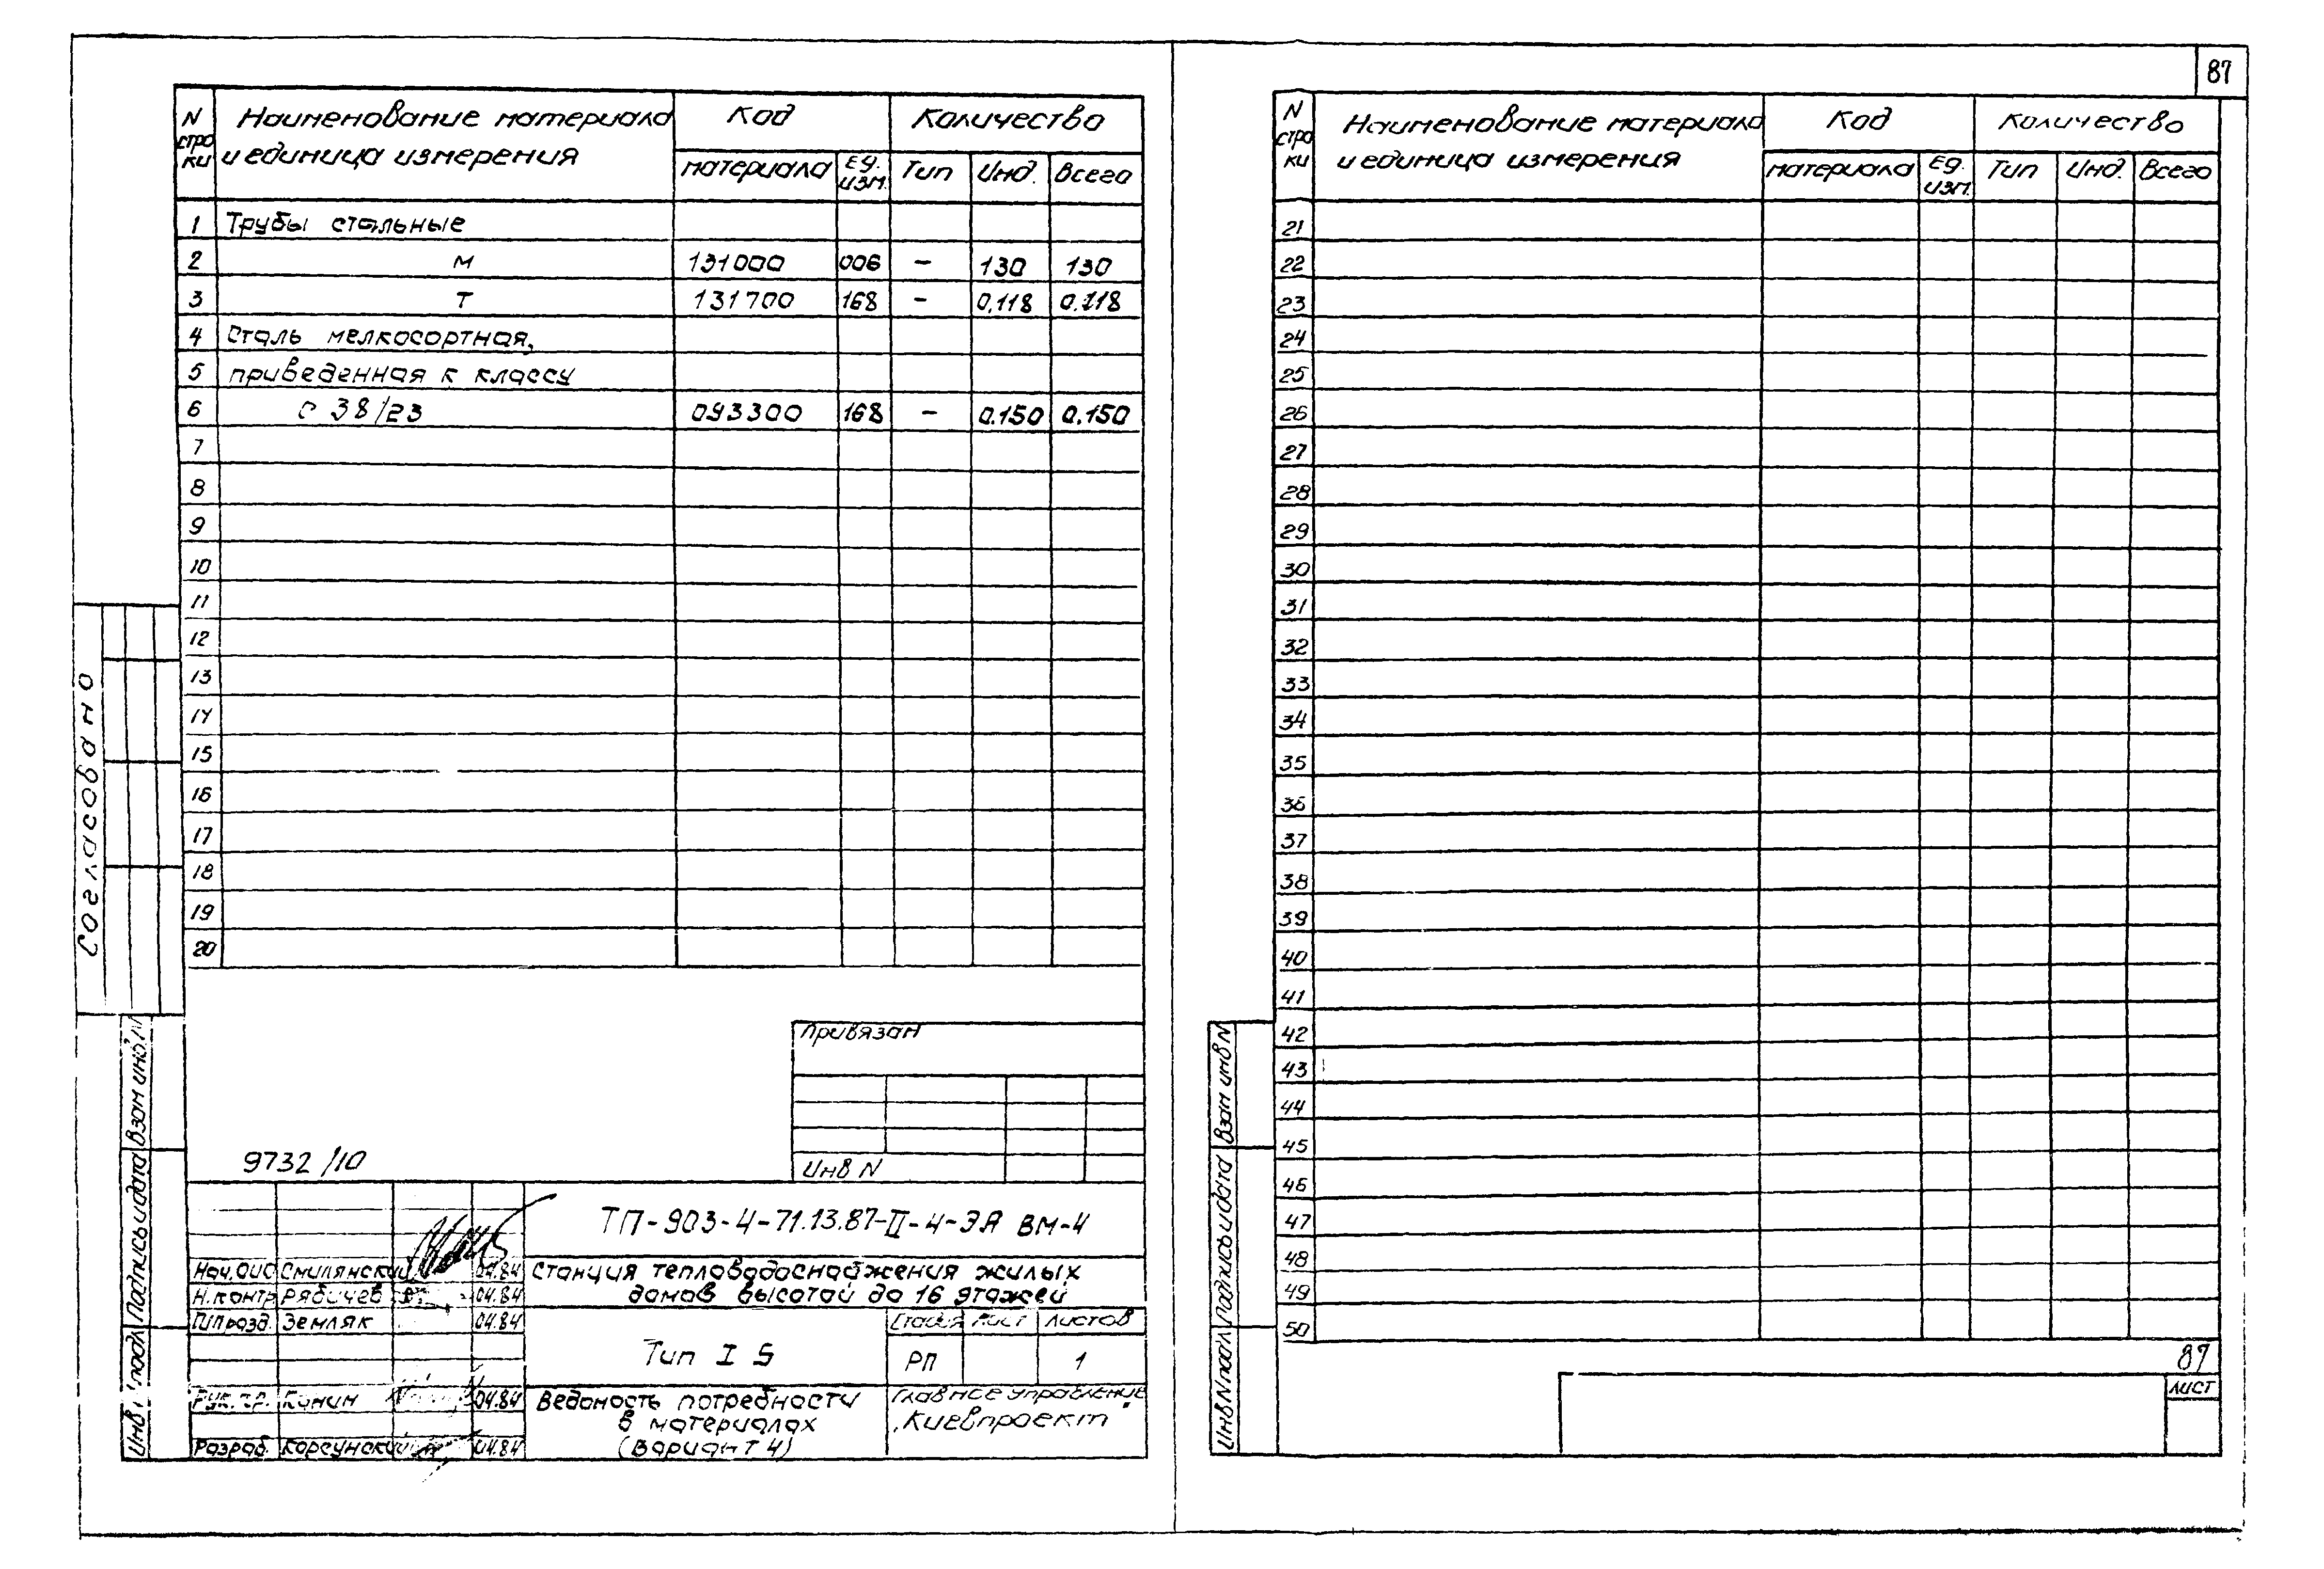 87
N стро ки
Наименование материала и единица измерения
Код
Количество
материала
Ед. изм.
Тип
Инд.
Всего
1 Трубы стальные
2 м 131000 006 – 130 130
3 т 131700 168 – 0,118 0.118
4 Сталь мелкосортная,
5 приведенная к классу
6 с 38/23 093300 168 – 0.150 0.150
7
8
9
10
11
12
13
14
15
16
17
18
19
20
Согласовано
Взам инв. N
Подпись и дата
Инв подл
Привязан
Инв N
9732/10
ТП-903-4-71.13.87-II-4-ЭА ВМ-4
Нач. ОИО Смилянский 04.84
Н.контр Рябичев 04.84
ГИП разд. Земляк 04.84
Рук. гр. Канин 04.84
Разраб. Корсунский 04.84
Станция тепловодоснабжения жилых
домов высотой до 16 этажей
Тип I S
Стадия Лист Листов
РП 1
Ведомость потребности
в материалах
(вариант 4)
Главное управление
"Киевпроект"
N стро ки
Наименование материала и единица измерения
Код
Количество
материала
Ед. изм.
Тип
Инд.
Всего
21
22
23
24
25
26
27
28
29
30
31
32
33
34
35
36
37
38
39
40
41
42
43
44
45
46
47
48
49
50
Взам инв N
Подпись и дата
Инв N подл
87
Лист